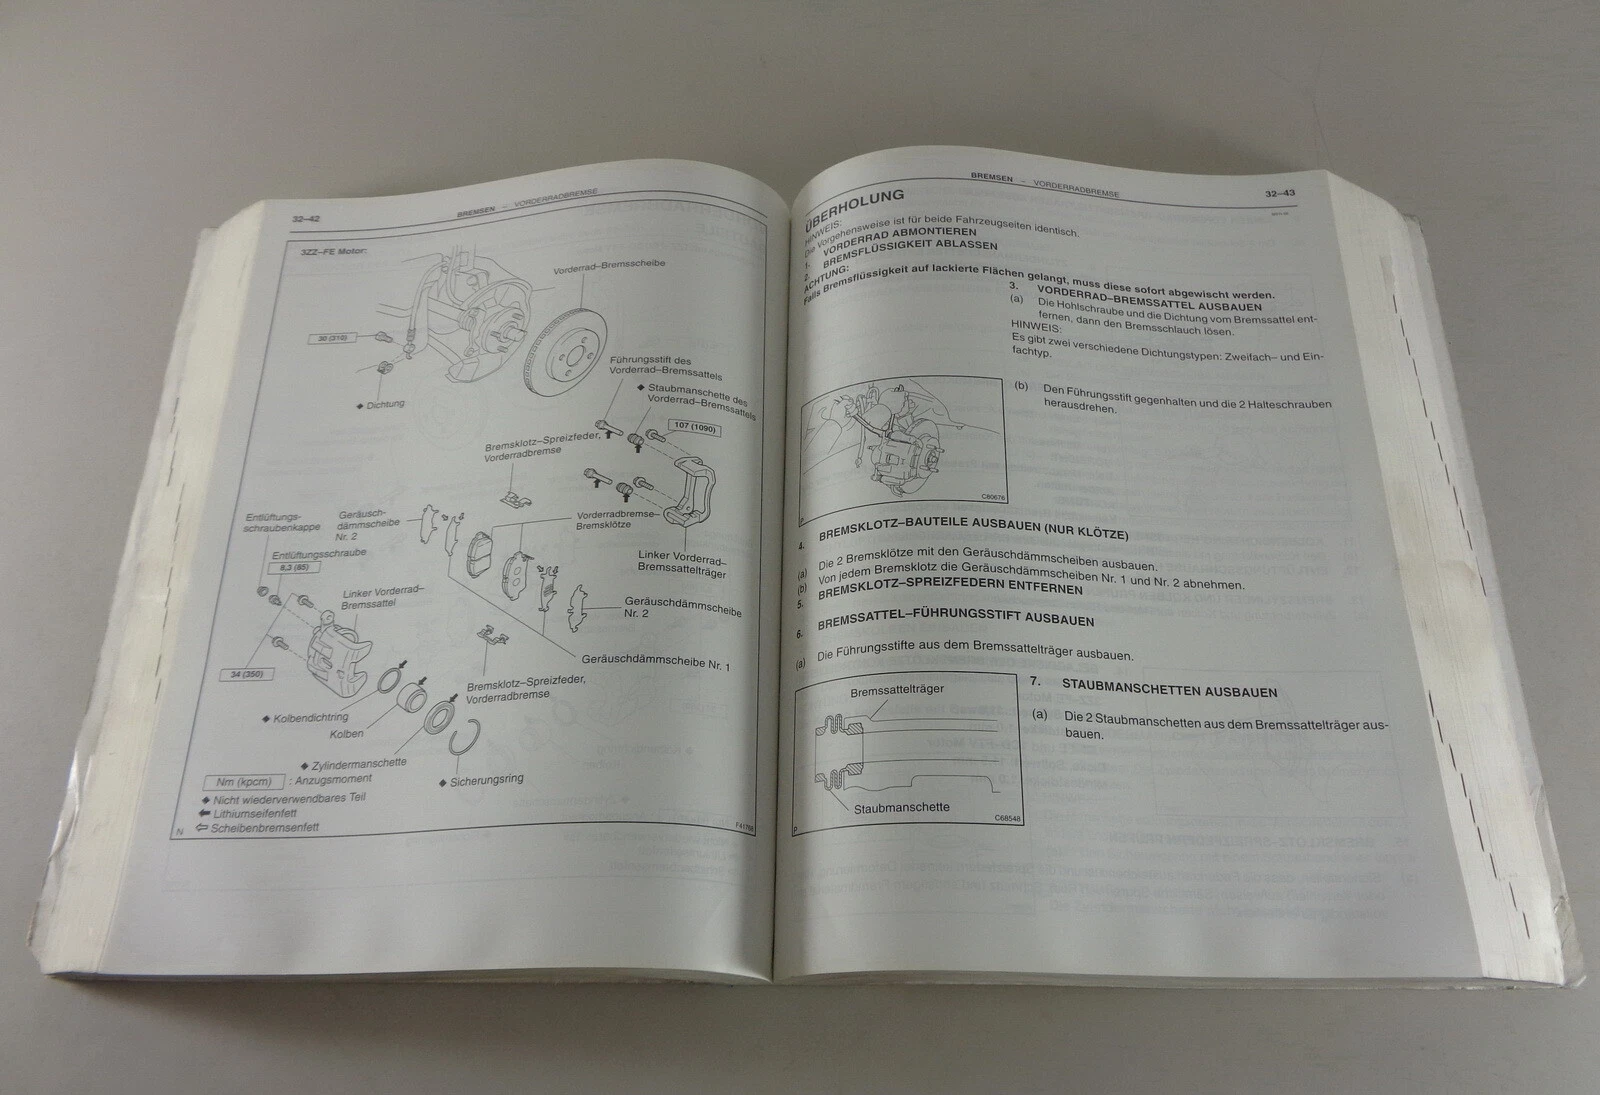 32–42
BREMSEN – VORDERRADBREMSE
3ZZ–FE Motor:
Vorderrad–Bremsscheibe
30 (310)
Dichtung
Führungsstift des
Vorderrad–Bremssattels
Staubmanschette des
Vorderrad–Bremssattels
107 (1090)
Bremsklotz–Spreizfeder,
Vorderradbremse
Entlüftungs-
schraubenkappe
Geräusch-
dämmscheibe
Nr. 2
Vorderradbremse–
Bremsklötze
Entlüftungsschraube
8,3 (85)
Linker Vorderrad–
Bremssattelträger
Linker Vorderrad–
Bremssattel
Geräuschdämmscheibe
Nr. 2
34 (350)
Geräuschdämmscheibe Nr. 1
Bremsklotz–Spreizfeder,
Vorderradbremse
Kolbendichtring
Kolben
Zylindermanschette
Sicherungsring
Nm (kpcm) : Anzugsmoment
Nicht wiederverwendbares Teil
Lithiumseifenfett
Scheibenbremsenfett
N
BREMSEN – VORDERRADBREMSE
32–43
ÜBERHOLUNG
HINWEIS:
Die Vorgehensweise ist für beide Fahrzeugseiten identisch.
1. VORDERRAD ABMONTIEREN
2. BREMSFLÜSSIGKEIT ABLASSEN
ACHTUNG:
Falls Bremsflüssigkeit auf lackierte Flächen gelangt, muss diese sofort abgewischt werden.
3. VORDERRAD–BREMSSATTEL AUSBAUEN
(a) Die Hohlschraube und die Dichtung vom Bremssattel ent-
fernen, dann den Bremsschlauch lösen.
HINWEIS:
Es gibt zwei verschiedene Dichtungstypen: Zweifach– und Ein-
fachtyp.
(b) Den Führungsstift gegenhalten und die 2 Halteschrauben
herausdrehen.
C80676
4. BREMSKLOTZ–BAUTEILE AUSBAUEN (NUR KLÖTZE)
(a) Die 2 Bremsklötze mit den Geräuschdämmscheiben ausbauen.
(b) Von jedem Bremsklotz die Geräuschdämmscheiben Nr. 1 und Nr. 2 abnehmen.
5. BREMSKLOTZ–SPREIZFEDERN ENTFERNEN
6. BREMSSATTEL–FÜHRUNGSSTIFT AUSBAUEN
(a) Die Führungsstifte aus dem Bremssattelträger ausbauen.
7. STAUBMANSCHETTEN AUSBAUEN
(a) Die 2 Staubmanschetten aus dem Bremssattelträger aus-
bauen.
Bremssattelträger
Staubmanschette
P
C68548